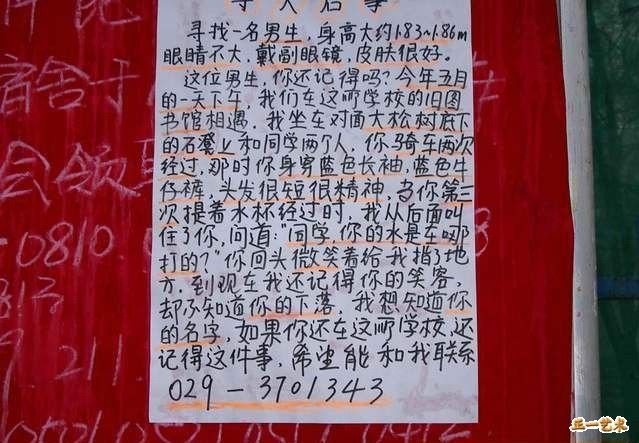 寻人启事
寻找一名男生，身高大约1.83~1.86m
眼睛不大，戴副眼镜，皮肤很好。
这位男生，你还记得吗？今年五月
的一天下午，我们在这所学校的旧图
书馆相遇，我坐在对面大松树底下
的石凳上和同学两个人，你骑车两次
经过，那时你身穿蓝色长袖，蓝色牛
仔裤，头发很短很精神，当你第三
次提着水杯经过时，我从后面叫
住了你，问道："同学，你的水是在哪
打的？"你回头微笑着给我指了地
方，到现在我还记得你的笑容，
却不知道你的下落，我想知道你
的名字，如果你还在这所学校，还
记得这件事，希望能和我联系
029-3701343
宿舍于
会领
-0810
813
9 211
正一艺术